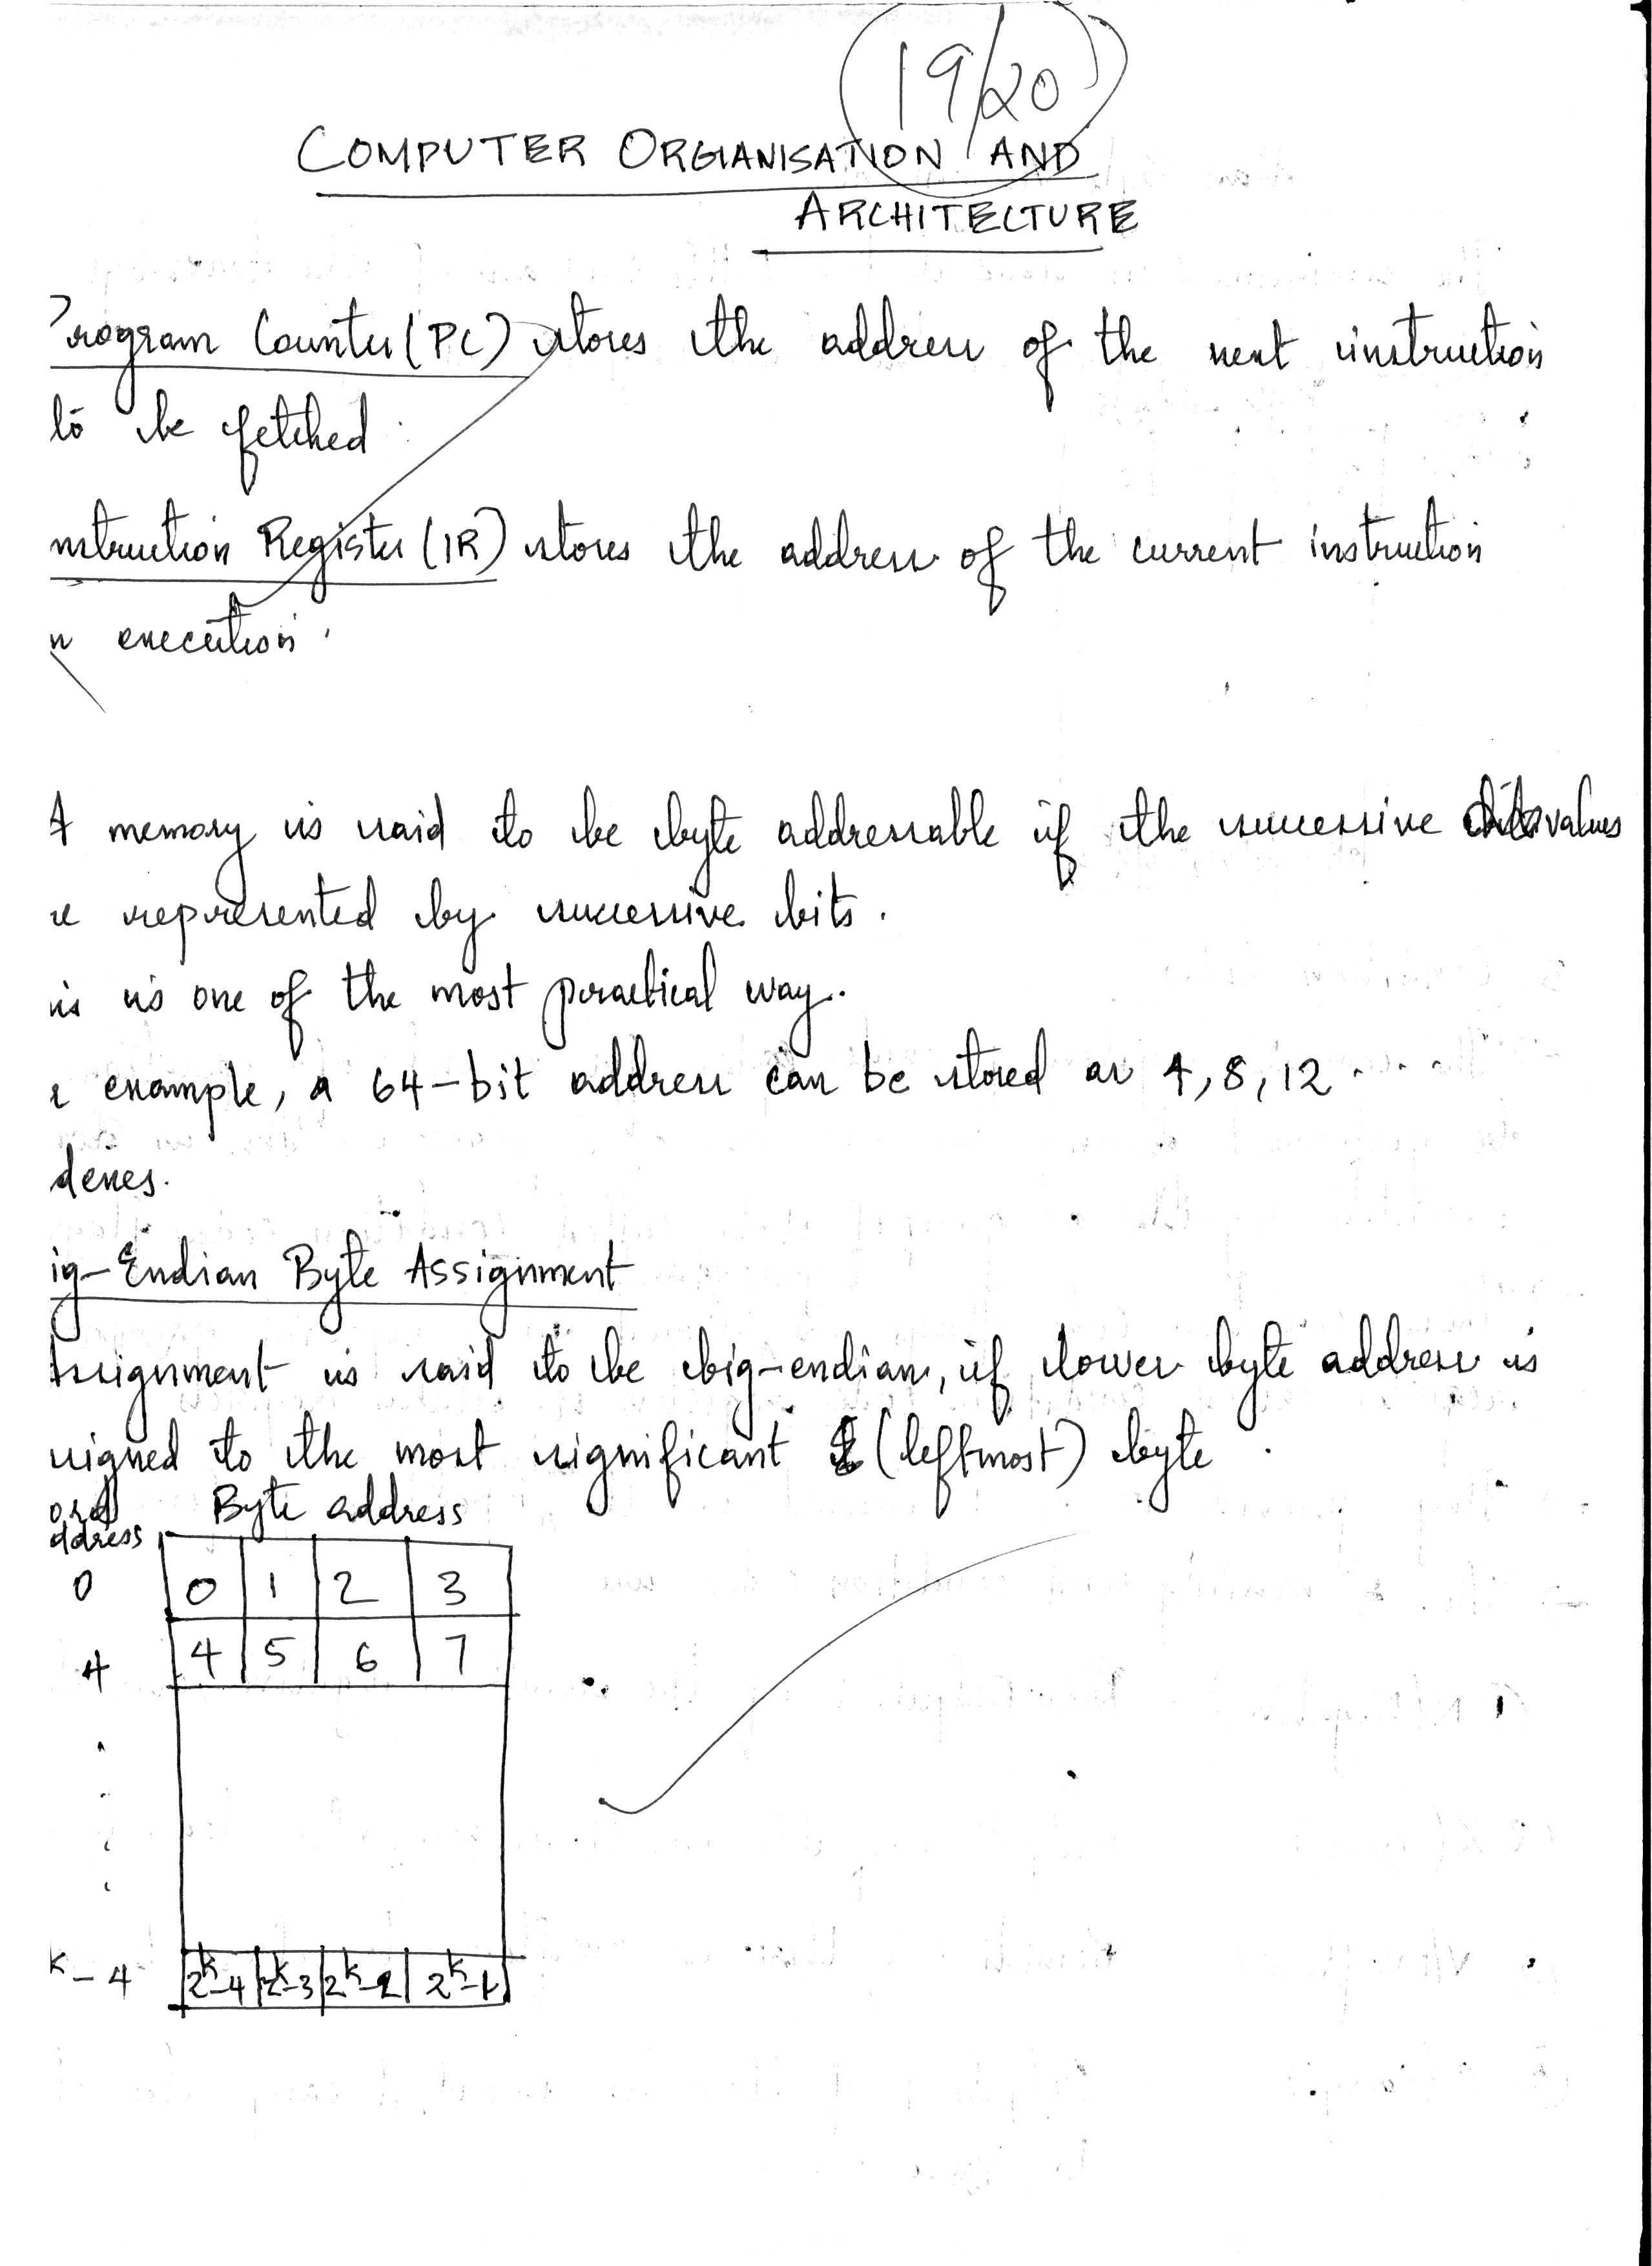 19/20
COMPUTER ORGANISATION AND
ARCHITECTURE
Program Counter (PC) stores the address of the next instruction
to be fetched
nstruction Register (IR) stores the address of the current instruction
n execution.
A memory is said to be byte addressable if the successive values
re represented by successive bits.
is is one of the most practical way.
r example, a 64-bit address can be stored as 4, 8, 12 ......
dresses.
ig-Endian Byte Assignment
Assignment is said to be big-endian, if lower byte address is
signed to the most significant (leftmost) byte.
ord Byte address
ddress
0 0 1 2 3
4 4 5 6 7
k-4 2^k-4 2^k-3 2^k-2 2^k-1